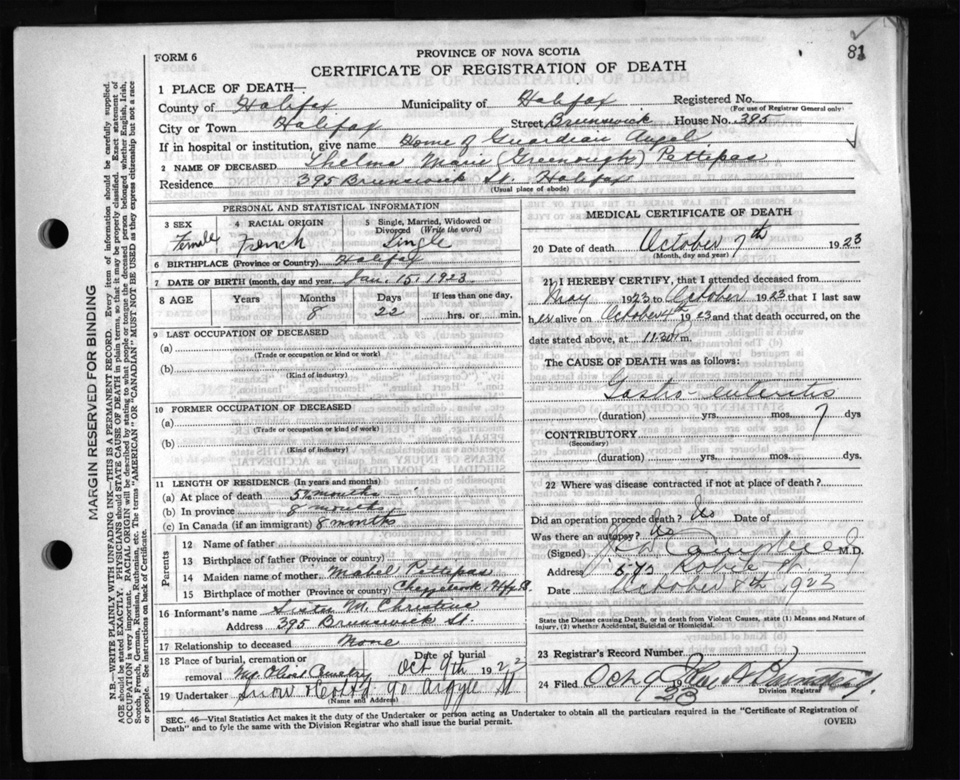 81
FORM 6
PROVINCE OF NOVA SCOTIA
CERTIFICATE OF REGISTRATION OF DEATH
1 PLACE OF DEATH—
County of Halifax Municipality of Halifax Registered No.
(For use of Registrar General only)
City or Town Halifax Street Brunswick House No. 395
If in hospital or institution, give name Home of Guardian Angel
2 NAME OF DECEASED Thelma Marie (Greenough) Pottipas
Residence 395 Brunswick St. Halifax
(Usual place of abode)
PERSONAL AND STATISTICAL INFORMATION
3 SEX Female
4 RACIAL ORIGIN French
5 Single, Married, Widowed or Divorced (Write the word) Single
6 BIRTHPLACE (Province or Country) Halifax
7 DATE OF BIRTH (month, day and year) Jan. 15, 1923
8 AGE Years Months 8 Days 22 If less than one day, hrs. or min.
9 LAST OCCUPATION OF DECEASED
(a)
(Trade or occupation or kind or work)
(b)
(Kind of industry)
10 FORMER OCCUPATION OF DECEASED
(a)
(Trade or occupation or kind of work)
(b)
(Kind of industry)
11 LENGTH OF RESIDENCE (In years and months)
(a) At place of death months
(b) In province 8 months
(c) In Canada (if an immigrant) 8 months
Parents
12 Name of father
13 Birthplace of father (Province or country)
14 Maiden name of mother Mabel Pottipas
15 Birthplace of mother (Province or country)
16 Informant's name Sister M. Christina
Address 395 Brunswick St.
17 Relationship to deceased None
18 Place of burial, cremation or removal Mt Olivet Cemetery Date of burial Oct 9th 1923
19 Undertaker Snow & Co Ltd 90 Argyle St
(Name and Address)
MEDICAL CERTIFICATE OF DEATH
20 Date of death October 7th 1923
(Month, day and year)
21 I HEREBY CERTIFY, that I attended deceased from
May 1923 to October 1923 that I last saw
her alive on October 4th 1923 and that death occurred, on the
date stated above, at m.
The CAUSE OF DEATH was as follows:
Gastro-enteritis
(duration) yrs. mos. 7 dys
CONTRIBUTORY
(Secondary)
(duration) yrs. mos. dys.
22 Where was disease contracted if not at place of death?
Did an operation precede death? No Date of
Was there an autopsy? No
(Signed) Campbell M.D.
Address Robie St.
Date October 8th 1923
State the Disease causing Death, or in death from Violent Causes, state (1) Means and Nature of Injury, (2) whether Accidental, Suicidal or Homicidal.
23 Registrar's Record Number
24 Filed Oct 9 1923
Division Registrar
SEC. 46—Vital Statistics Act makes it the duty of the Undertaker or person acting as Undertaker to obtain all the particulars required in the "Certificate of Registration of
Death" and to fyle the same with the Division Registrar who shall issue the burial permit.
(OVER)
MARGIN RESERVED FOR BINDING
N.B.—WRITE PLAINLY WITH UNFADING INK—THIS IS A PERMANENT RECORD. Every item of information should be carefully supplied.
AGE should be stated EXACTLY. PHYSICIANS should STATE CAUSE OF DEATH in plain terms, so that it may be properly classified. Exact statement of
OCCUPATION is very important. RACIAL ORIGIN will be described by stating to what people or tongue the deceased person belonged whether English, Irish,
Scotch, French, German, Russian, Ruthenian, etc. The terms "AMERICAN" OR "CANADIAN" MUST NOT BE USED as they express citizenship but not a race
or people. See instructions on back of Certificate.